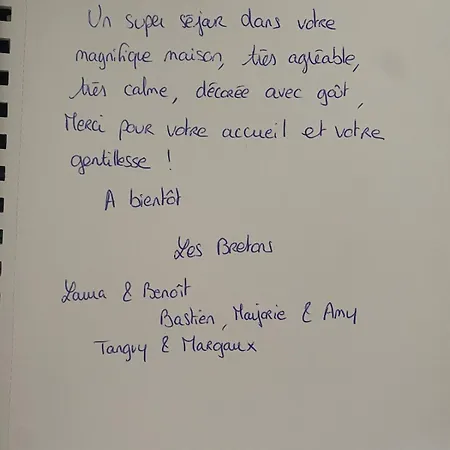 Un super séjour dans votre
magnifique maison, très agréable,
très calme, décorée avec goût,
Merci pour votre accueil et votre
gentillesse !
A bientôt
Les Bretons
Laura & Benoît
Bastien, Marjorie & Amy
Tanguy & Margaux